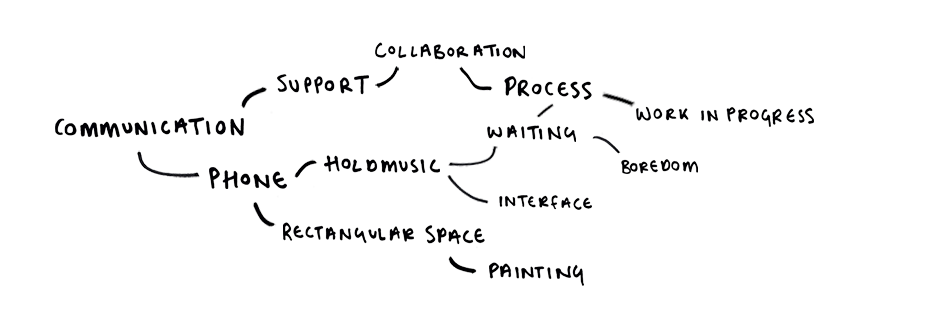 COLLABORATION
SUPPORT
PROCESS
WORK IN PROGRESS
COMMUNICATION
WAITING
BOREDOM
HOLDMUSIC
PHONE
INTERFACE
RECTANGULAR SPACE
PAINTING